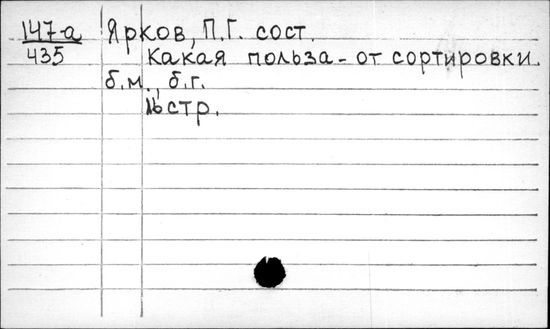 147-а Ярков, П.Г. сост.
435 Какая польза - от сортировки.
б.м., б.г.
16 стр.